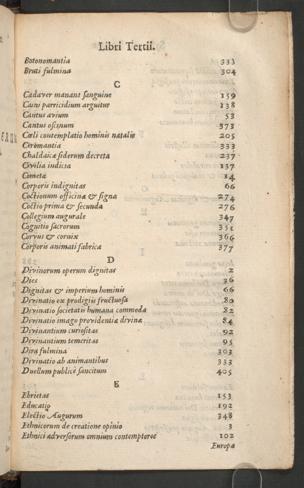 Libri Tertii.
Botonomantia 333
Bruti fulmina 304
C
Cadaver manant sanguine 159
Caini parricidium arguitur 138
Cantus avium 53
Cantus oscinum 373
Cœli contemplatio hominis natalis 205
Ceromantia 333
Chaldaicæ siderum decreta 237
Civilia indicia 157
Cometa 14
Corporis indignitas 66
Coctionum officinæ & signa 274
Coctio prima & secunda 276
Collegium augurale 347
Cognitio sacrorum 351
Corvus & cornix 366
Corporis animati fabrica 377
D
Divinorum operum dignitas 2
Dies 26
Dignitas & imperium hominis 66
Divinatio ex prodigiis fructuosa 80
Divinatio societati humanæ commoda 82
Divinatio imago providentiæ divinæ 84
Divinantium curiositas 92
Divinantium temeritas 95
Dira fulmina 303
Divinatio ab animantibus 333
Duellum publicè sancitum 405
E
Ebrietas 153
Educatio 192
Electio Augurum 348
Ethnicorum de creatione opinio 3
Ethnici adversorum omnium contemptores 102
Europa